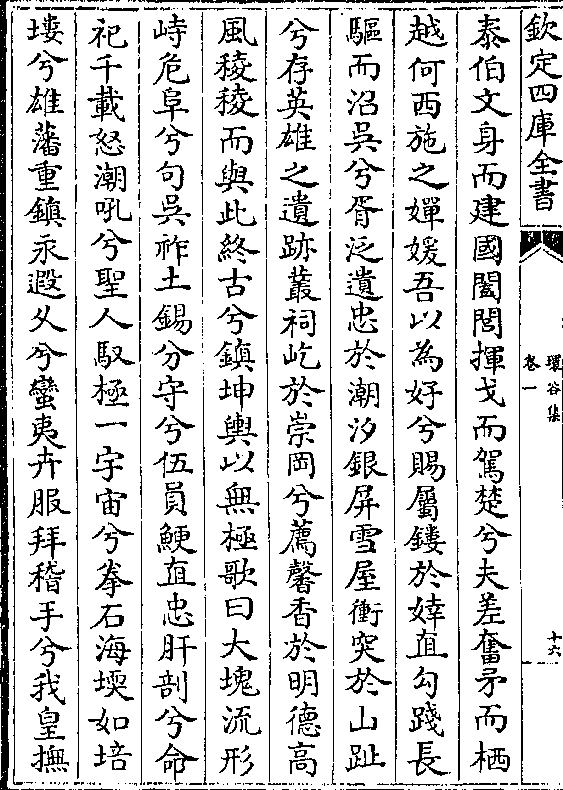 欽定四庫全書
環谷集
卷一
十六
泰伯文身而建國闔閭揮戈而駕楚兮夫差奮矛而栖
越何西施之嬋媛吾以為好兮賜屬鏤於婞直勾踐長
驅而沼吳兮胥泛遺忠於潮汐銀屏雪屋衝突於山趾
兮存英雄之遺跡叢祠屹於崇岡兮薦馨香於明德高
風稜稜而與此終古兮鎮坤輿以無極歌曰大塊流形
峙危阜兮句吳祚土錫分守兮伍員鯁直忠肝剖兮命
祀千載怒潮吼兮聖人馭極一宇宙兮拳石海堧如培
塿兮雄藩重鎮永遐久兮蠻夷卉服拜稽手兮我皇撫